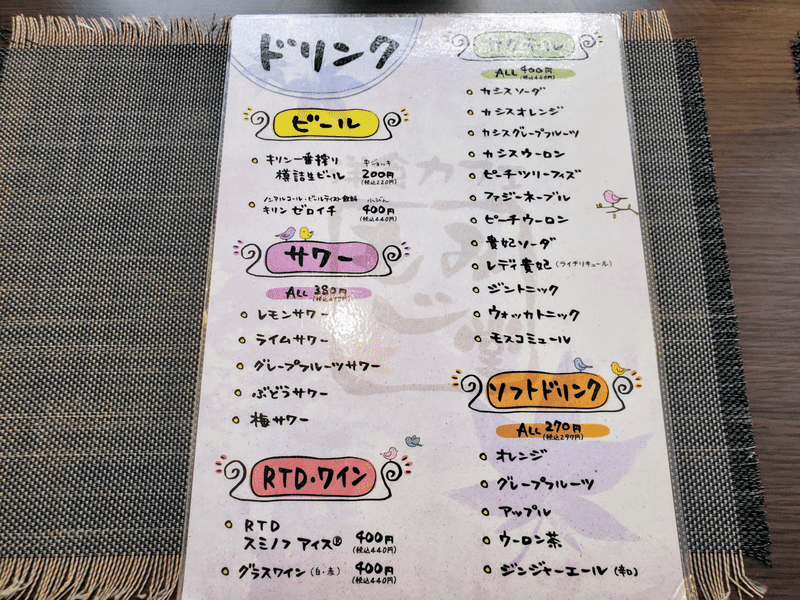 ドリンク
ビール
キリン一番搾り 中ジョッキ
樽詰生ビール 200円
(税込220円)
ノンアルコール・ビールテイスト飲料 小びん
キリン ゼロイチ 400円
(税込440円)
サワー
ALL 380円
レモンサワー
ライムサワー
グレープフルーツサワー
ぶどうサワー
梅サワー
RTD・ワイン
RTD
スミノフ アイス® 400円
(税込440円)
グラスワイン(白・赤) 400円
(税込440円)
カクテル
ALL 400円
(税込440円)
カシスソーダ
カシスオレンジ
カシスグレープフルーツ
カシスウーロン
ピーチツリーフィズ
ファジーネーブル
ピーチウーロン
貴妃ソーダ
レディ貴妃(ライチリキュール)
ジントニック
ウォッカトニック
モスコミュール
ソフトドリンク
ALL 270円
(税込297円)
オレンジ
グレープフルーツ
アップル
ウーロン茶
ジンジャーエール(辛口)